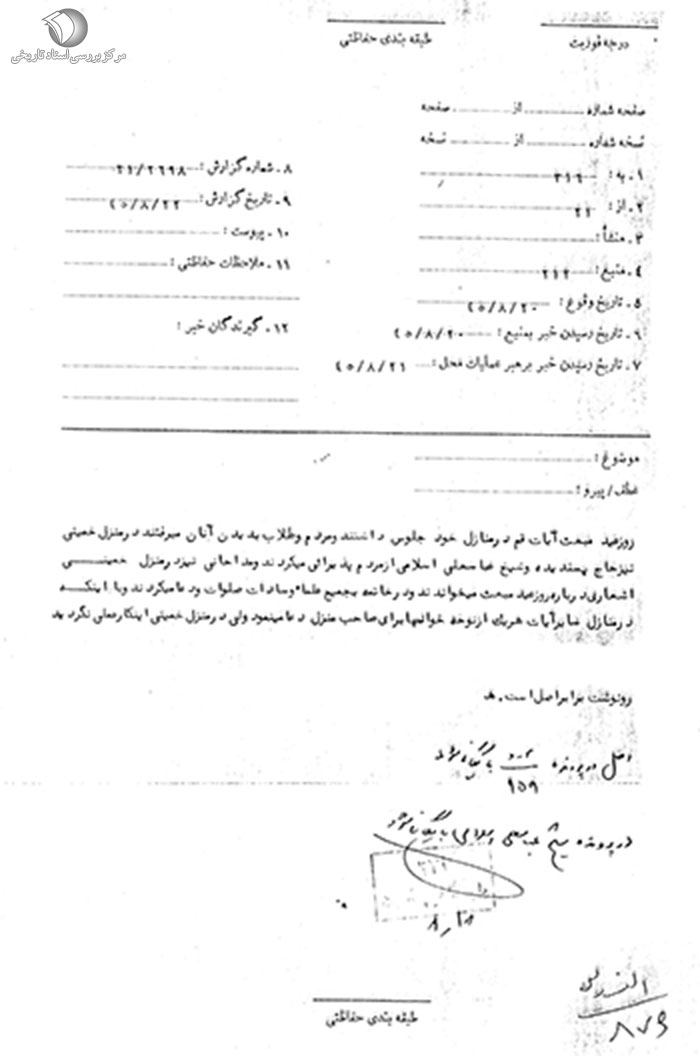 مرکز بررسی اسناد تاریخی
درجه فوریت
طبقه بندی حفاظتی
صفحه شماره از صفحه
نسخه شماره از نسخه
۱ـ به: ۳۱۶
۲ـ از: ۲۱
۳ـ منشأ:
۴ـ منبع: ۲۱۲
۵ـ تاریخ وقوع: ۴۵/۸/۲۰
۶ـ تاریخ رسیدن خبر بمنبع: ۴۵/۸/۲۰
۷ـ تاریخ رسیدن خبر برهبر عملیات محل: ۴۵/۸/۲۱
۸ـ شماره گزارش: ۲۱/۲۶۹۸
۹ـ تاریخ گزارش: ۴۵/۸/۲۲
۱۰ـ پیوست:
۱۱ـ ملاحظات حفاظتی:
۱۲ـ گیرندگان خبر:
موضوع:
عطف/پیرو:
روزعید مبعث آیات قم درمنازل خود جلوس داشتند ومردم وطلاب بدیدن آنان میرفتند درمنزل خمینی
نیزحاج پسندیده وشیخ عباسعلی اسلامی ازمردم پذیرائی میکردند ومداحانی نیزدرمنزل خمینی
اشعاری درباره روزعید مبعث میخواندند ودرخاتمه بجمیع علماء وسادات صلوات ودعا میکردند وبا اینکه
درمنازل سایرآیات هریک ازنوحه خوانها برای صاحب منزل دعا مینمود ولی درمنزل خمینی اینکارعملی نگردید
رونوشت برابراصل است. هد
اصل در پرونده بایگانی شود
۹۵۹
در پرونده شیخ عباسعلی اسلامی بایگانی شود
۸/۲۸
طبقه بندی حفاظتی